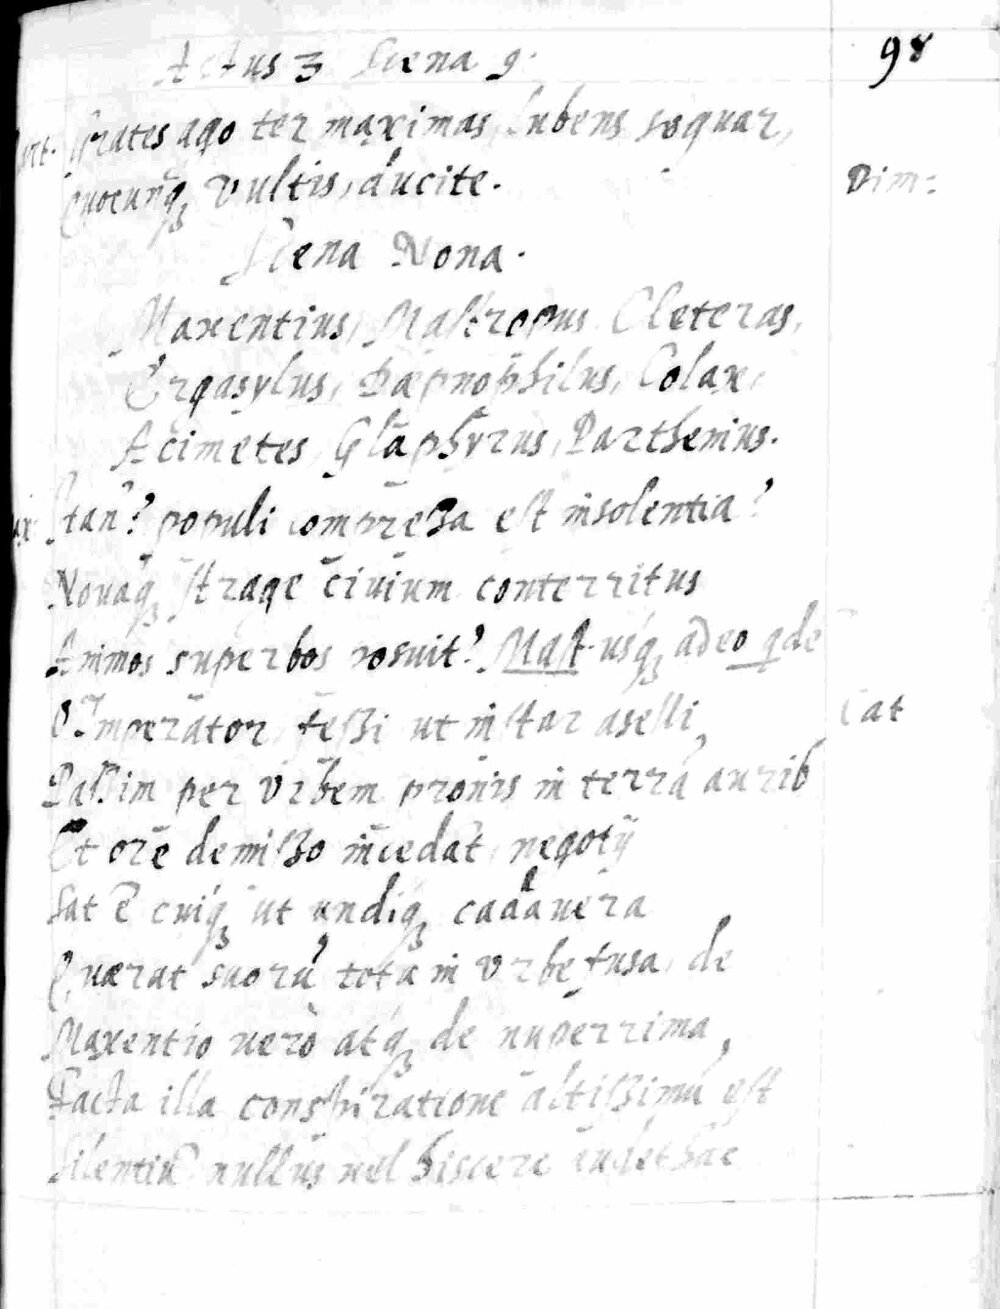 Actus 3 Scena 9. 98
Grates ago ter maximas, lubens sequar,
Quocunq; vultis, ducite. Dim:
Scena Nona.
Maxentius, Mastropus Cleteras,
Ergasylus, Dæpnophilus, Colax,
Acimetes Glaphyrus, Parthenius.
tan? populi compressa est insolentia?
Nouaq; strage ciuium conterritus
Animos superbos posuit? Mast. usq; adeo qde
O Imperator, fessi ut instar aselli,
Passim per Vrbem pronis in terrā aurib
Et ore demisso incedāt, negotij
Sat ē cuiq; ut undiq; cadauera
Quærat suorū tota in vrbe fusa, de
Maxentio uerò atq; de nuperrima,
Facta illa conspiratione altissimū est
Silentiū nullus uel hiscere audet hac